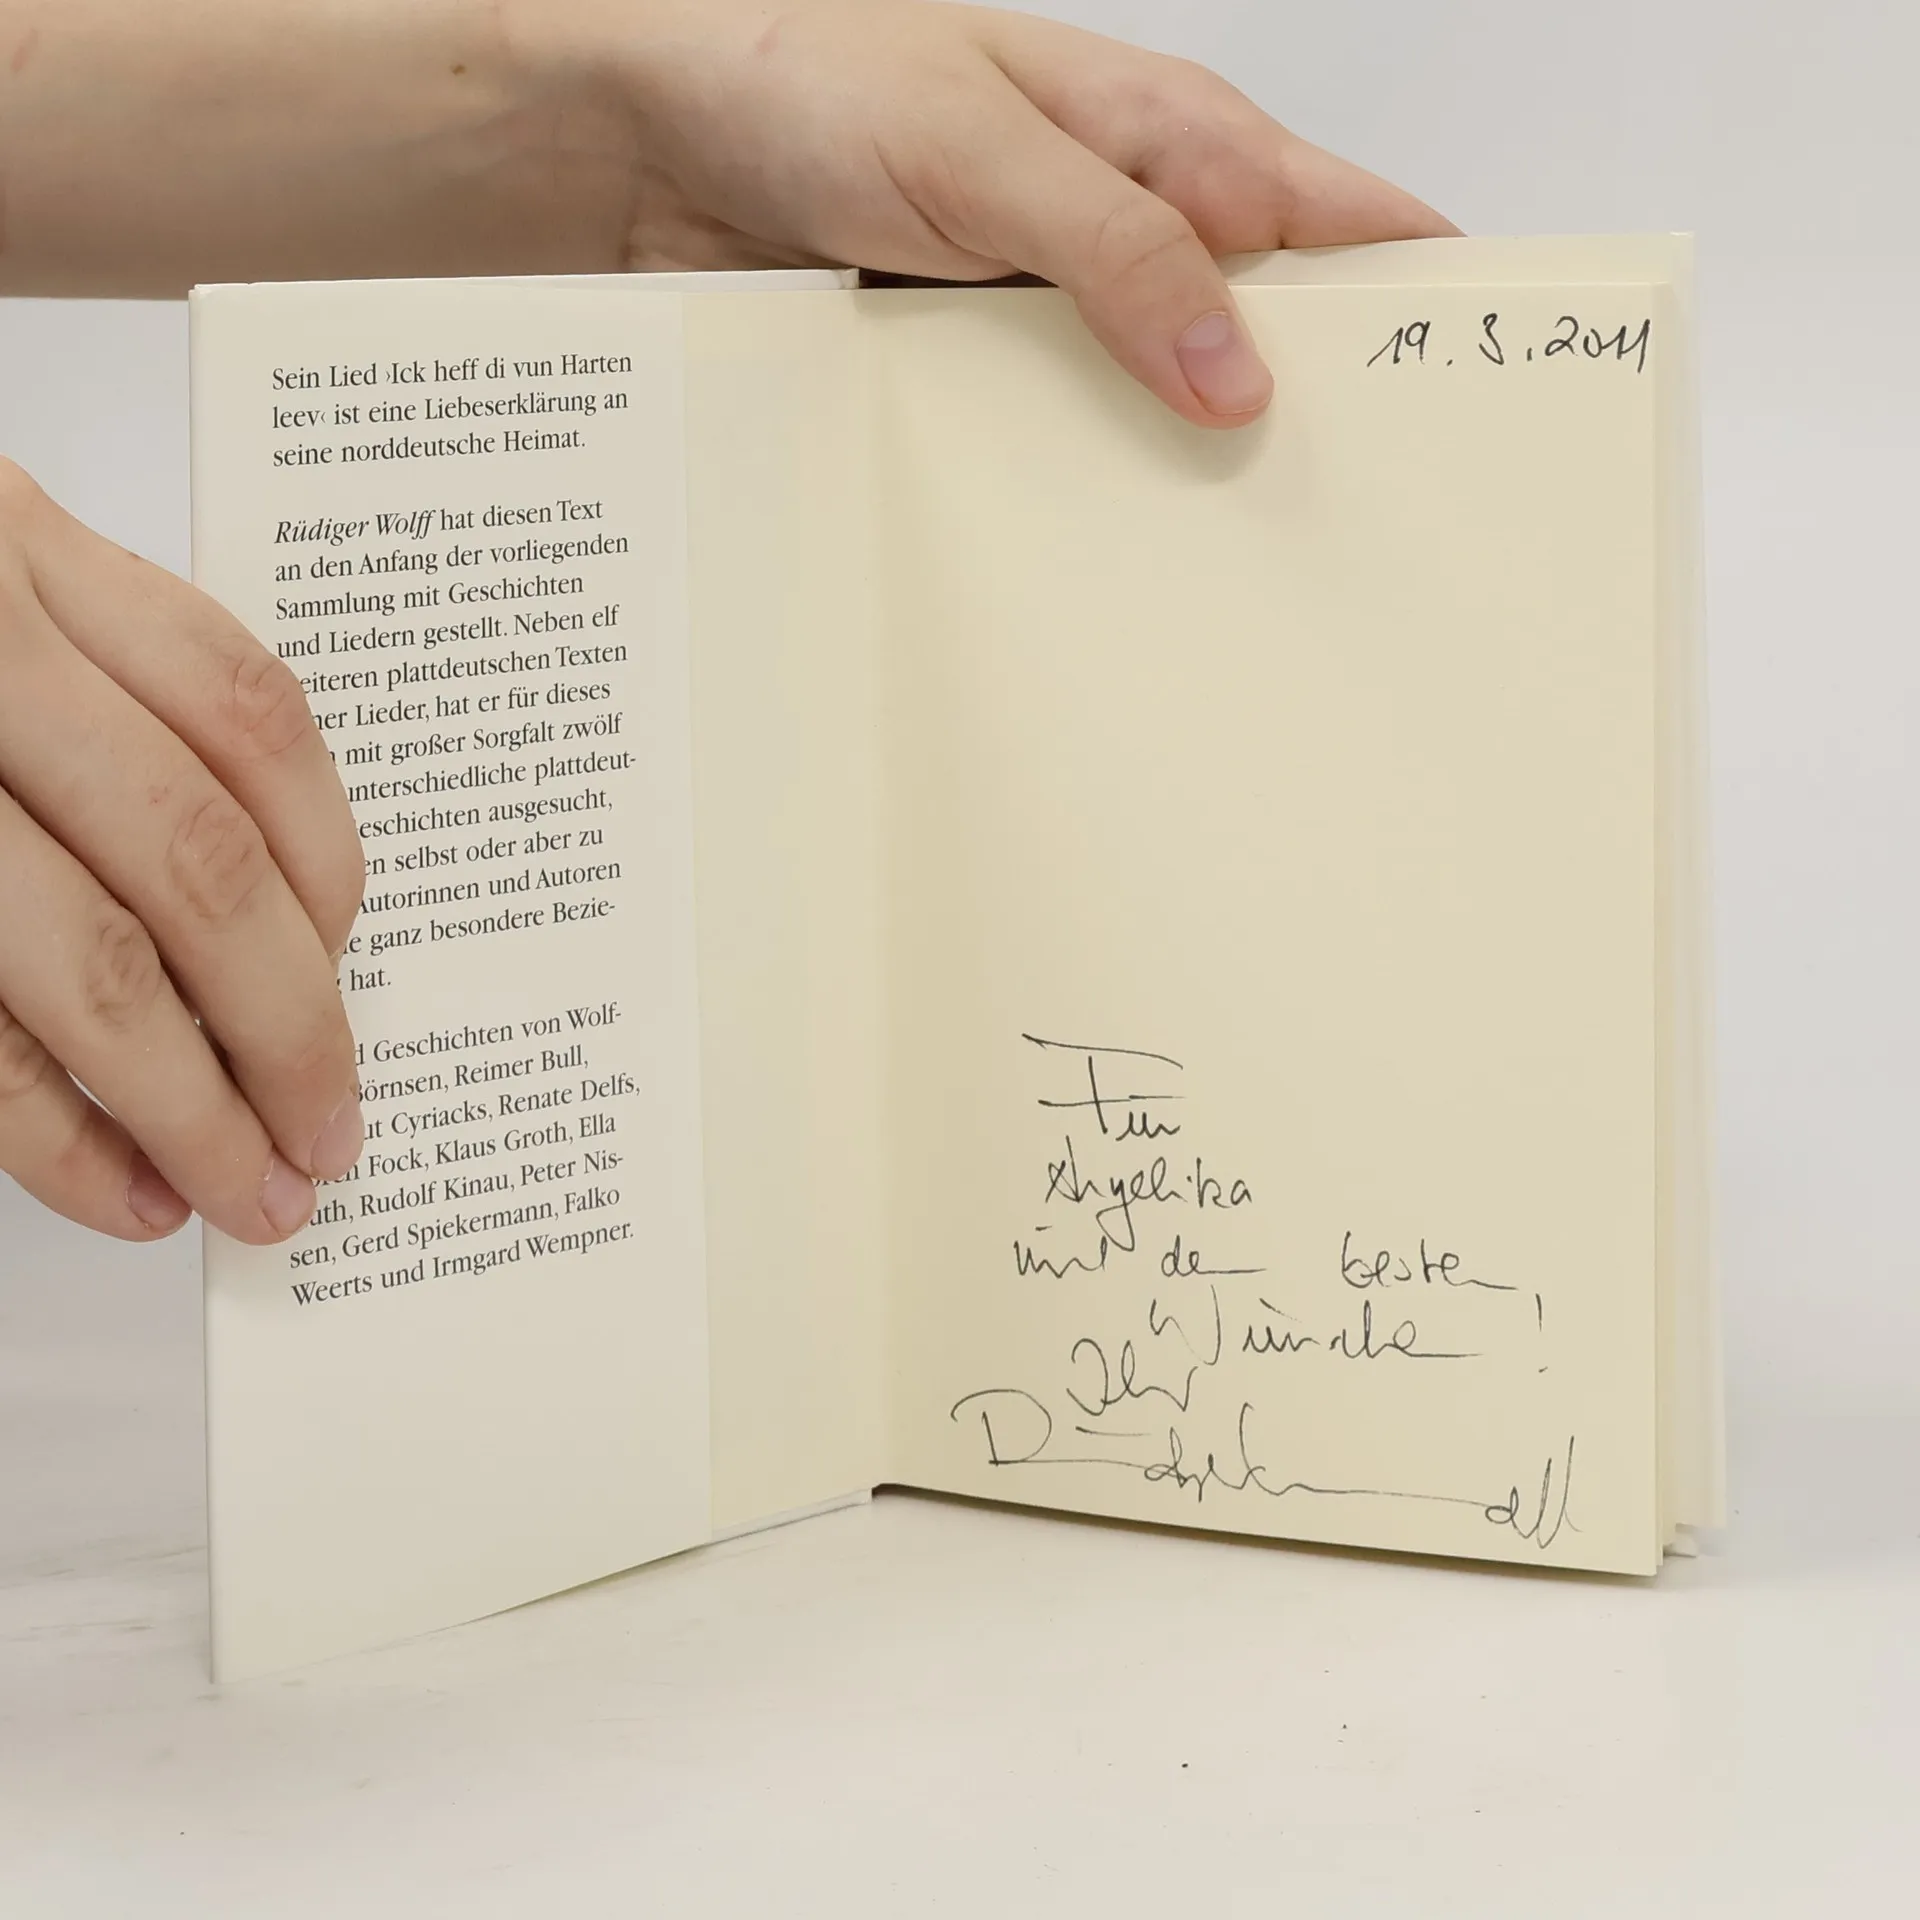 Sein Lied ›Ick heff di vun Harten
leev‹ ist eine Liebeserklärung an
seine norddeutsche Heimat.
Rüdiger Wolff hat diesen Text
an den Anfang der vorliegenden
Sammlung mit Geschichten
und Liedern gestellt. Neben elf
eiteren plattdeutschen Texten
ner Lieder, hat er für dieses
mit großer Sorgfalt zwölf
unterschiedliche plattdeut-
eschichten ausgesucht,
en selbst oder aber zu
Autorinnen und Autoren
e ganz besondere Bezie-
hat.
d Geschichten von Wolf-
Börnsen, Reimer Bull,
ut Cyriacks, Renate Delfs,
Fock, Klaus Groth, Ella
uth, Rudolf Kinau, Peter Nis-
sen, Gerd Spiekermann, Falko
Weerts und Irmgard Wempner.
19.3.2011
Für
Angelika
mit den besten
Wünschen!
Ihr